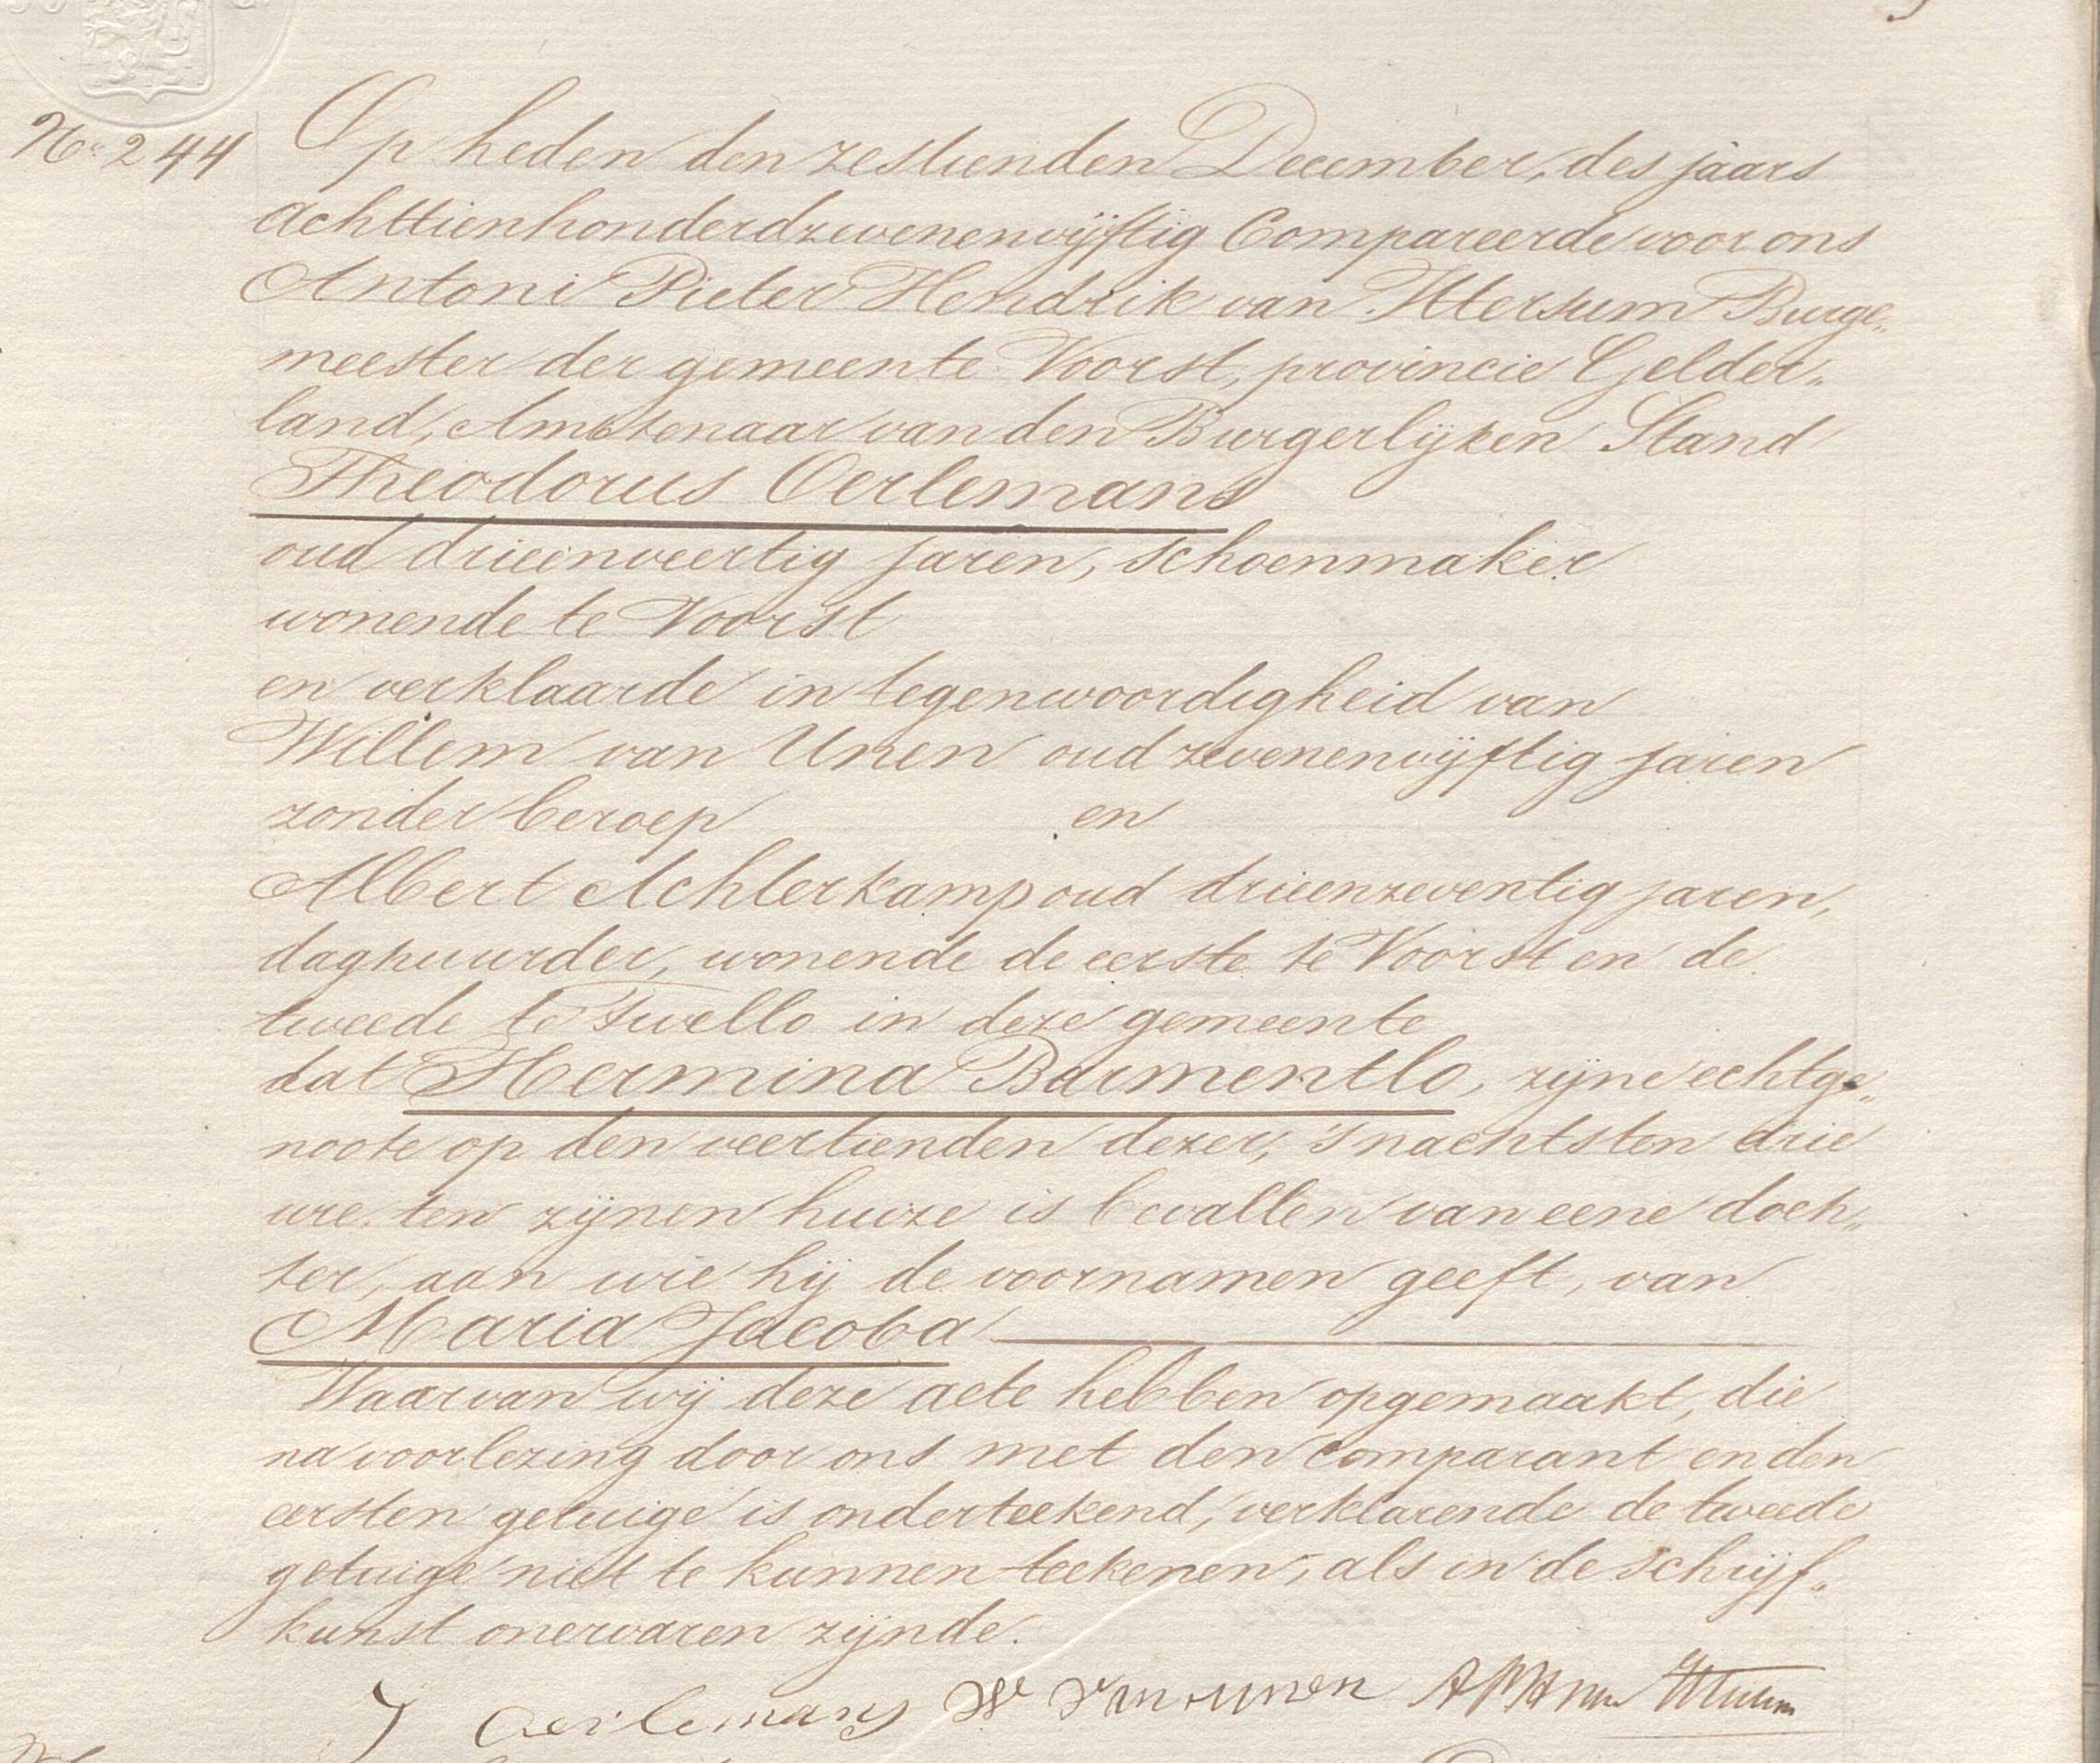 No. 244
Op heden den zestienden December, des jaars
achttienhonderdzevenenvijftig Compareerde voor ons
Antoni Pieter Hendrik van Ittersum Burge„
meester der gemeente Voorst, provincie Gelder„
land, Ambtenaar van den Burgerlijken Stand
Theodorus Oerlemans
oud drieenveertig jaren, schoenmaker
wonende te Voorst
en verklaarde in tegenwoordigheid van
Willem van Unen oud zevenenvijftig jaren
zonder beroep en
Albert Achterkamp oud drieenzeventig jaren,
daghuurder, wonende de eerste te Voorst en de
tweede te Twello in deze gemeente
dat Hermina Barmentlo, zijne echtge„
noote op den veertienden dezer, 's nachts ten drie
ure ten zijnen huize is bevallen van eene doch„
ter, aan wie hij de voornamen geeft, van
Maria Jacoba
Waarvan wij deze acte hebben opgemaakt, die
na voorlezing door ons met den comparant en den
eersten getuige is onderteekend, verklarende de tweede
getuige niet te kunnen teekenen, als in de schrijf„
kunst onervaren zijnde.
T Oerlemans W van unen APH van Ittersum